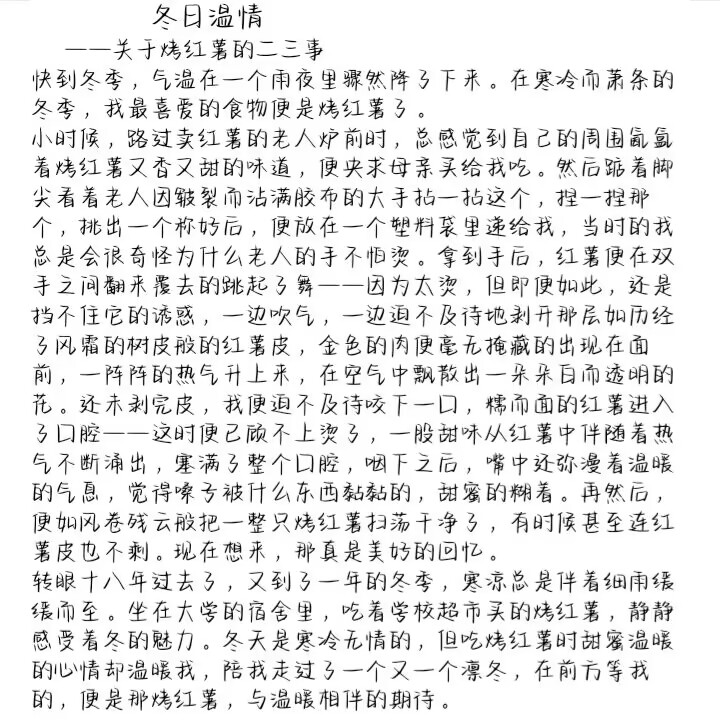 冬日温情
——关于烤红薯的二三事
快到冬季，气温在一个雨夜里骤然降了下来。在寒冷而萧条的
冬季，我最喜爱的食物便是烤红薯了。
小时候，路过卖红薯的老人炉前时，总感觉到自己的周围氤氲
着烤红薯又香又甜的味道，便央求母亲买给我吃。然后踮着脚
尖看着老人因皲裂而沾满胶布的大手拈一拈这个，捏一捏那
个，挑出一个称好后，便放在一个塑料袋里递给我，当时的我
总是会很奇怪为什么老人的手不怕烫。拿到手后，红薯便在双
手之间翻来覆去的跳起了舞——因为太烫，但即便如此，还是
挡不住它的诱惑，一边吹气，一边迫不及待地剥开那层如历经
了风霜的树皮般的红薯皮，金色的肉便毫无掩藏的出现在面
前，一阵阵的热气升上来，在空气中飘散出一朵朵白而透明的
花。还未剥完皮，我便迫不及待咬下一口，糯而面的红薯进入
了口腔——这时便已顾不上烫了，一股甜味从红薯中伴随着热
气不断涌出，塞满了整个口腔，咽下之后，嘴中还弥漫着温暖
的气息，觉得嗓子被什么东西黏黏的，甜蜜的糊着。再然后，
便如风卷残云般把一整只烤红薯扫荡干净了，有时候甚至连红
薯皮也不剩。现在想来，那真是美好的回忆。
转眼十八年过去了，又到了一年的冬季，寒凉总是伴着细雨缓
缓而至。坐在大学的宿舍里，吃着学校超市买的烤红薯，静静
感受着冬的魅力。冬天是寒冷无情的，但吃烤红薯时甜蜜温暖
的心情却温暖我，陪我走过了一个又一个凛冬，在前方等我
的，便是那烤红薯，与温暖相伴的期待。